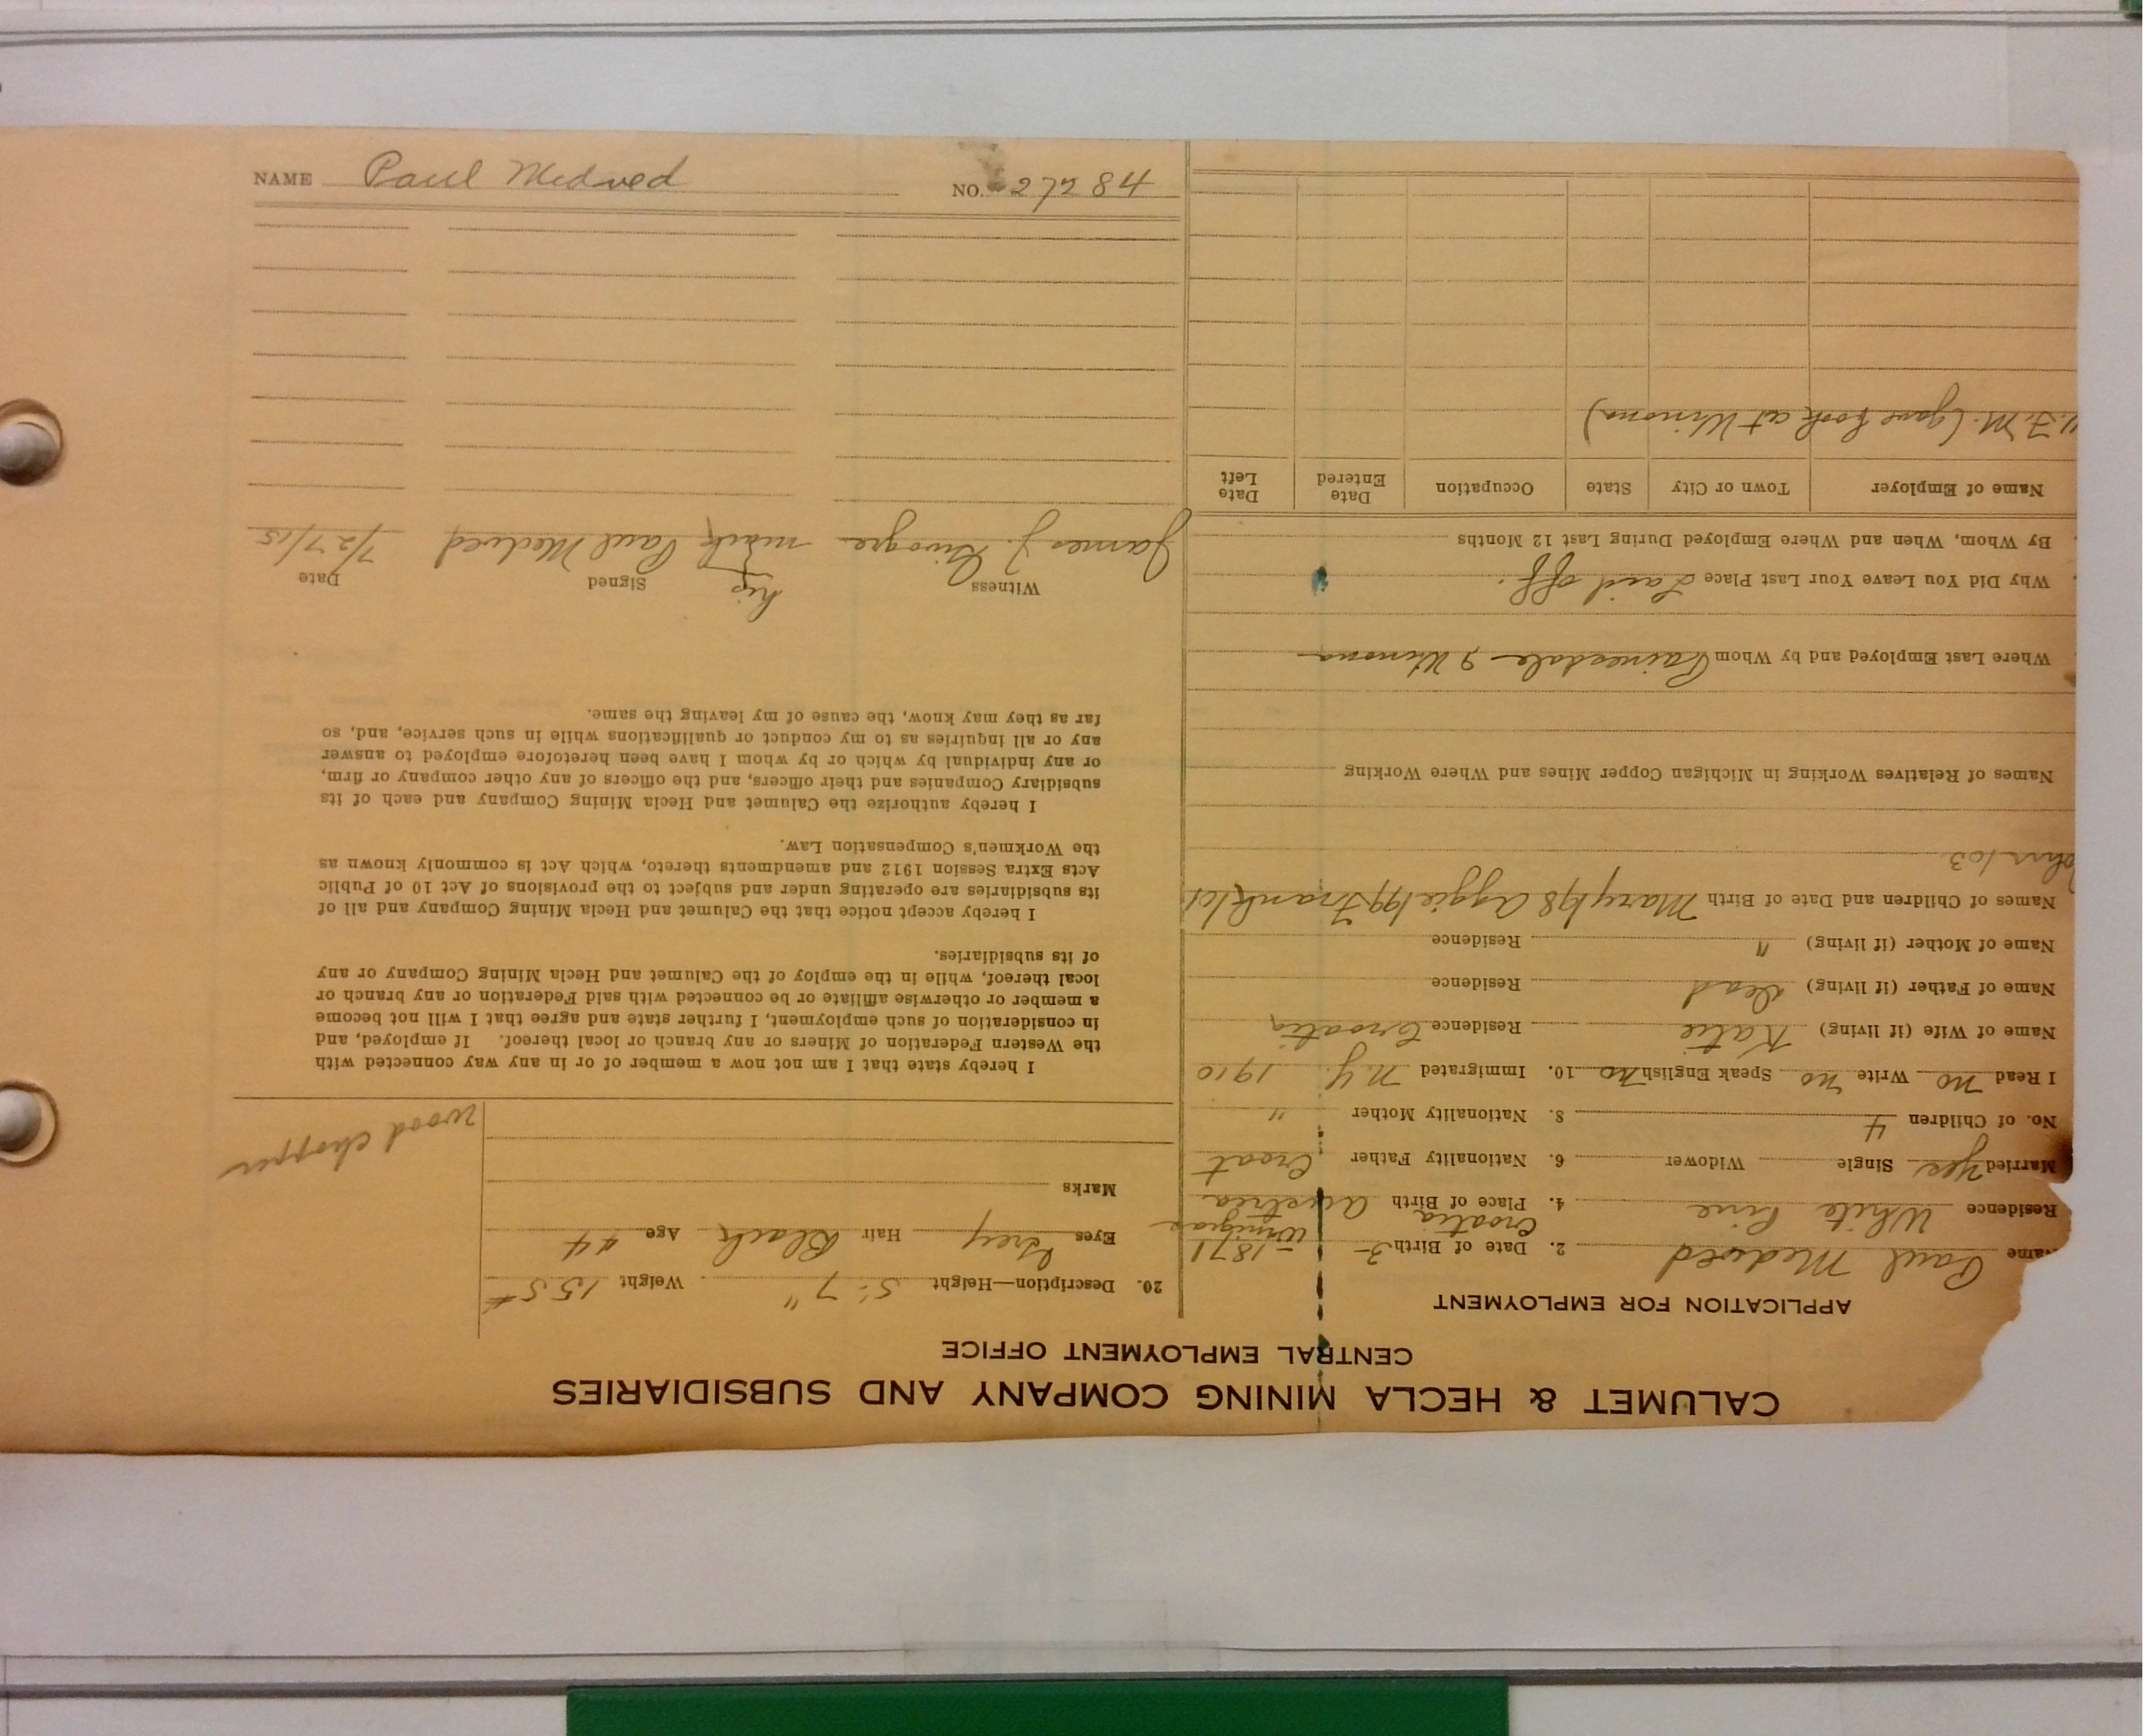 CALUMET & HECLA MINING COMPANY AND SUBSIDIARIES
CENTRAL EMPLOYMENT OFFICE
APPLICATION FOR EMPLOYMENT
Name Paul Medved 2. Date of Birth 3- -1871
Residence White Pine 4. Place of Birth Croatia Austria
Married Yes Single Widower 6. Nationality Father Croat
No. of Children 4 8. Nationality Mother "
I Read no Write no Speak English no 10. Immigrated N.Y. 1910
Name of Wife (if living) Katie Residence Croatia
Name of Father (if living) Dead Residence
Name of Mother (if living) " Residence
Names of Children and Date of Birth Mary 1/98 Aggie 1/99 Frank 1/01
John 1/03
Names of Relatives Working in Michigan Copper Mines and Where Working
Where Last Employed and by Whom Painesdale & Winona
Why Did You Leave Your Last Place Laid off.
By Whom, When and Where Employed During Last 12 Months
Name of Employer Town or City State Occupation Date Entered Date Left
F. M. (gave book at Winona)
20. Description—Height 5'-7" Weight 155#
Eyes Grey Hair Black Age 44
Marks
Wood chopper
I hereby state that I am not now a member of or in any way connected with
the Western Federation of Miners or any branch or local thereof. If employed, and
in consideration of such employment, I further state and agree that I will not become
a member or otherwise affiliate or be connected with said Federation or any branch or
local thereof, while in the employ of the Calumet and Hecla Mining Company or any
of its subsidiaries.
I hereby accept notice that the Calumet and Hecla Mining Company and all of
its subsidiaries are operating under and subject to the provisions of Act 10 of Public
Acts Extra Session 1912 and amendments thereto, which Act is commonly known as
the Workmen's Compensation Law.
I hereby authorize the Calumet and Hecla Mining Company and each of its
subsidiary Companies and their officers, and the officers of any other company or firm,
or any individual by which or by whom I have been heretofore employed to answer
any or all inquiries as to my conduct or qualifications while in such service, and, so
far as they may know, the cause of my leaving the same.
Witness his Signed Date
James J. mark Paul Medved 7/27/15
NAME Paul Medved NO. 27284